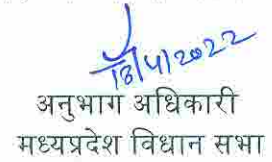 18/4/2022
अनुभाग अधिकारी
मध्यप्रदेश विधान सभा